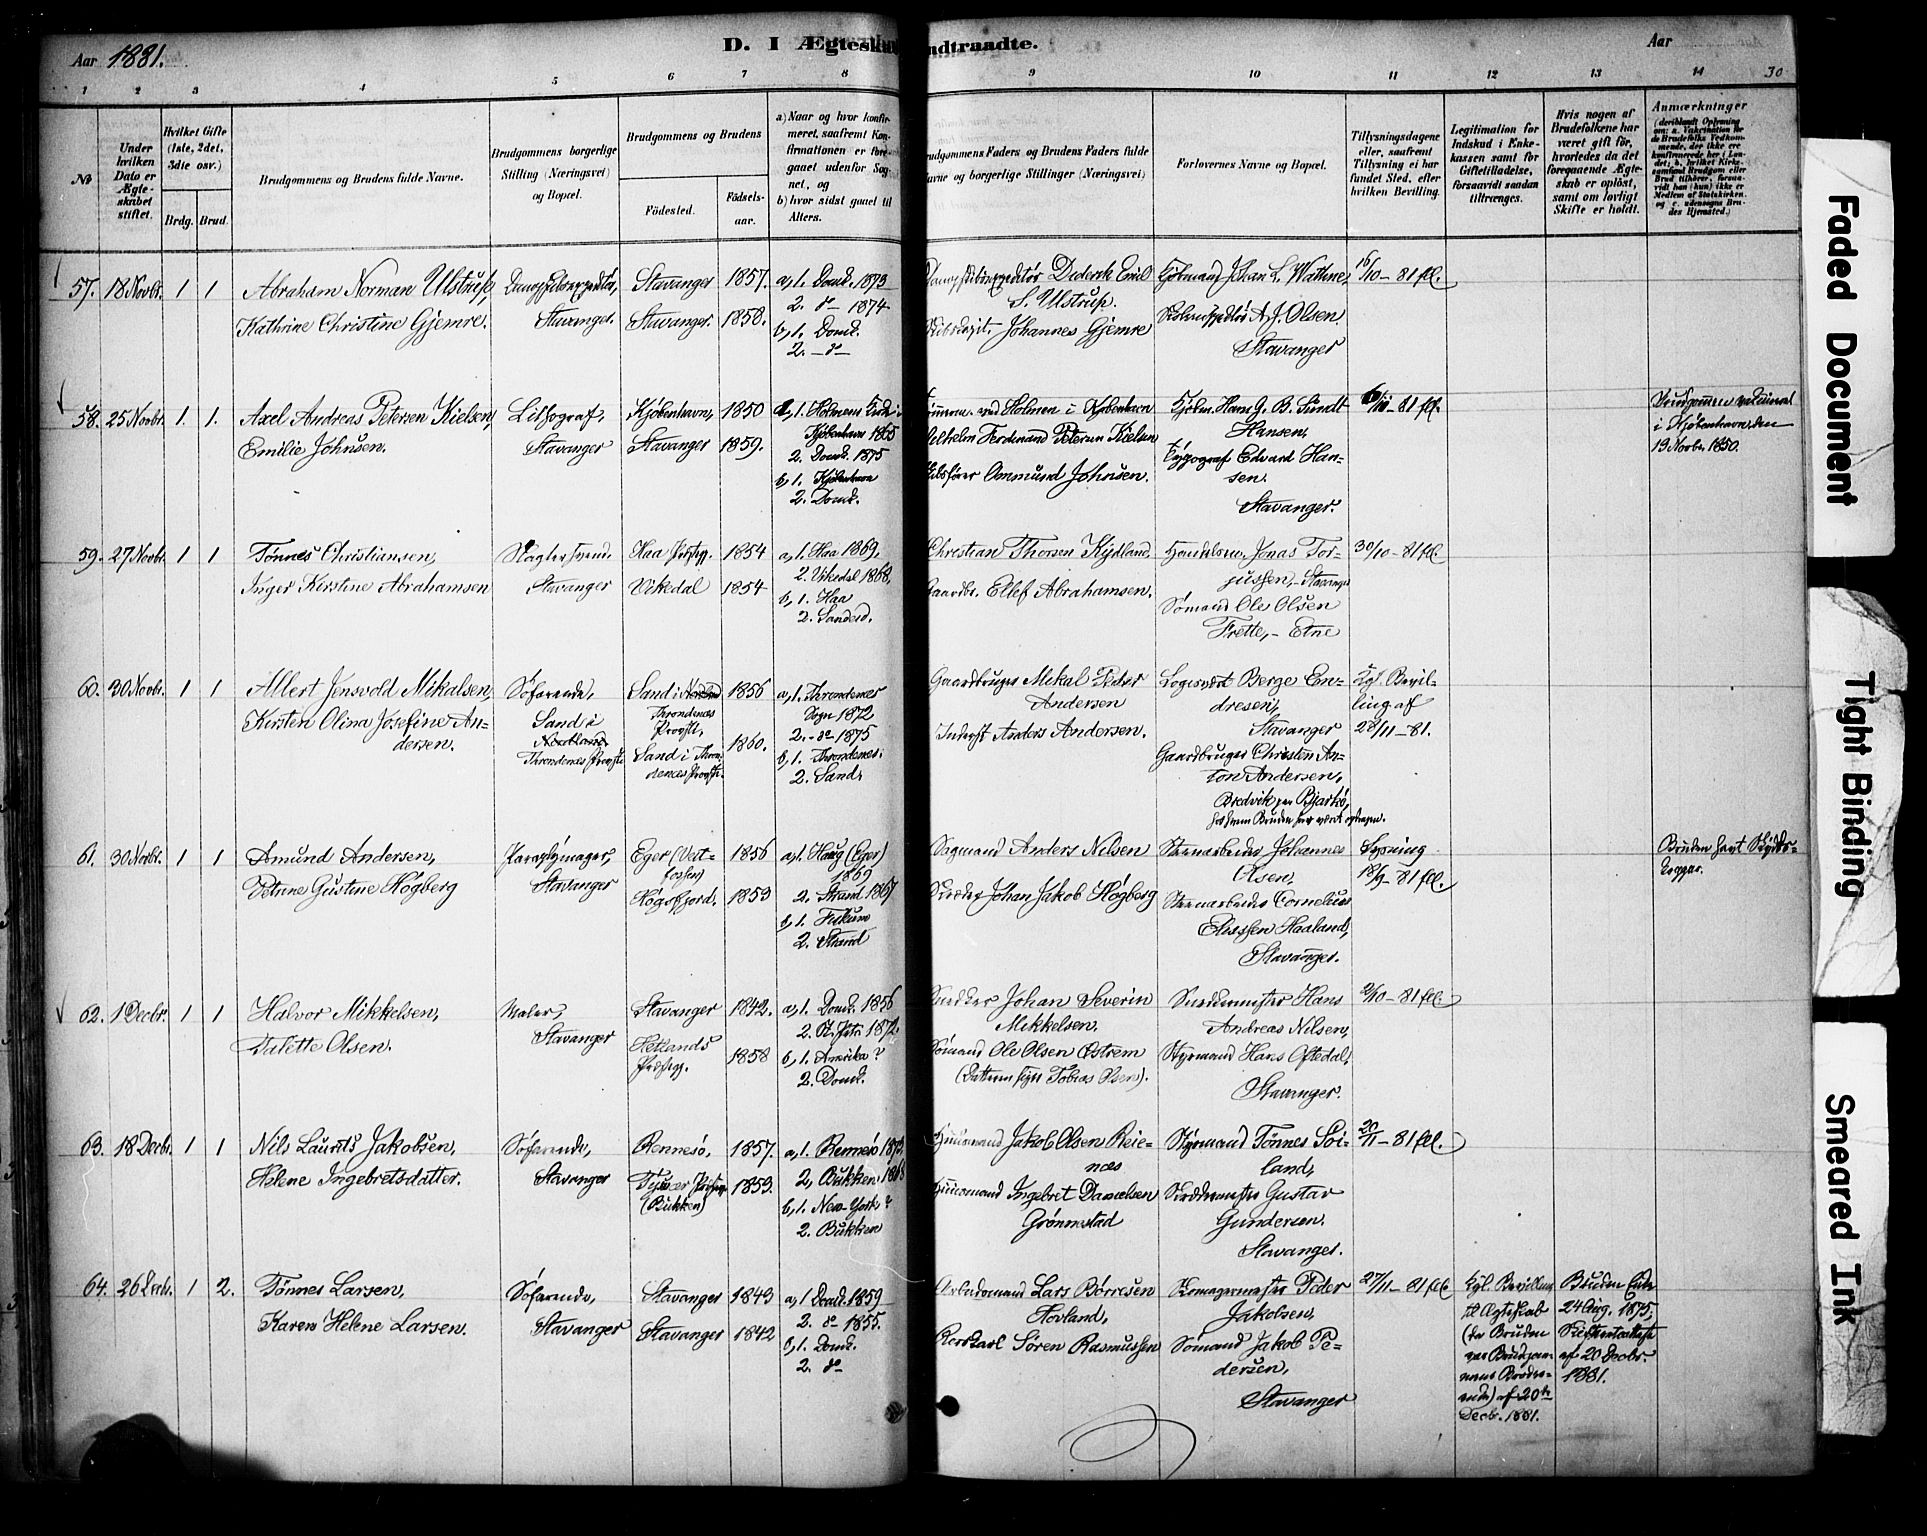 Aar 1881.
D. I Ægteska
ndtraadte.
Aar
1 2 3 4 5 6 7 8 9 10 11 12 13 14 30
No
Under hvilken Dato er Ægteskabet stiftet.
Hvilket Gifte (1ste, 2det, 3die osv.)
Brdg. Brud.
Brudgommens og Brudens fulde Navne.
Brudgommens borgerlige Stilling (Næringsvei) og Bopæl.
Brudgommens og Brudens
Fødested.
Fødselsaar.
a) Naar og hvor konfirmeret, saafremt Konfirmationen er foregaaet udenfor Sognet, og
b) hvor sidst gaaet til Alters.
rudgommens Faders og Brudens Faders fulde
avne og borgerlige Stillinger (Næringsvei)
Forlovernes Navne og Bopæl.
Tillysningsdagene eller, saafremt Tillysning ei har fundet Sted, efter hvilken Bevilling.
Legitimation for Indskud i Enkekassen samt for Giftetilladelse, forsaavidt saadan tiltrænges.
Hvis nogen af Brudefolkene har været gift før, hvorledes da det foregaaende Ægteskab er opløst, samt om lovligt Skifte er holdt.
Anmærkninger
57. 18 Novbr. 1 1
Abraham Norman Ulstrup,
Kathrine Christine Gjemre.
Stavanger.
Stavanger 1857.
Stavanger. 1858.
a, 1. Domk. 1873
2. do 1874
b, 1. Domk.
2. do
Diderik Emil
S. Ulstrup.
Johannes Gjemre
Kjøbmand Johan L. Wathne,
A. J. Olsen.
Stavanger
16/10 - 81 ffl.
58. 25 Novbr. 1. 1.
Axel Andreas Petersen Kielsen,
Emilie Johnsen.
Lithograf,
Stavanger
Kjøbenhavn, 1850
Stavanger 1859.
a, 1. Holmens Kirke i
Kjøbenhavn 1865
2. Domk. 1875
b, 1. Kjøbenhavn
2. Domk.
ved Holmen i Kjøbenhavn
Vilhelm Ferdinand Petersen Kielsen
Ommund Johnsen.
Kjøbm. Hans G. B. Sundt-
Hansen,
Typograf Edvard Han-
sen.
Stavanger.
/10 - 81 ffl.
Brudgommen vaccineret
i Kjøbenhavn den
19 Novbr. 1850.
59. 27 Novbr. 1 1
Tønnes Christiansen,
Inger Kirstine Abrahamsen
Slagtersvend.
Stavanger
Haa Præstgj. 1854
Vikedal 1854
a, 1. Haa 1869.
2. Vikedal 1868,
b, 1. Haa
2. Sandeid.
Christian Thorsen Kydland,
Gaardbr. Ellef Abrahamsen.
Jonas Tor-
jussen, - Stavanger
Sømand Ole Olsen
Frette, - Etne
30/10 - 81 ffl.
60. 30 Novbr. 1 1
Allert Jensvold Mikalsen,
Kirsten Olina Josefine An-
dersen.
Søfarende,
Sand i
Nordland
Throndenes Provsti
Sand i Nordland 1856
Throndenes
Provsti,
Sand i Thron- 1860.
denes Provsti.
a, 1. Throndenes
Sogn 1872
2. - do 1875
b, 1. Throndenes.
2. Sand.
Gaardbruger Mikal Peder
Andersen
Inderst Anders Andersen.
Logivært Berge En-
dresen,
Stavanger
Gaardbruger Christen An-
ton Andersen,
Bredvik pr. Bjarkø,
Kgl. Bevil-
ling af
28/11 - 81.
61. 30 Novbr. 1 1
Amund Andersen,
Petrine Gustine Høgberg
Paraplymager,
Stavanger
Eger (Vest- 1856
fossen)
Høgsfjord. 1859
a, 1 Haug (Eger)
1869
2. Strand 1867
b, 1.
2. Strand
Anders Nilsen
Johan Jakob Høgberg
Stenarbeider Johannes
Olsen,
Stenarbeider Cornelius
Elissen Haaland,
Stavanger.
Lysning
18/9 - 81 ffl.
62. 1 Decbr. 1 1
Halvor Mikkelsen,
Valette Olsen.
Maler,
Stavanger
Stavanger 1842.
Hetlands 1858
Præstgj.
a, 1. Domk. 1856
2. St. Petri 1872.
b, 1. Amerika ?
2. Domk.
Snedker Johan Severin
Mikkelsen.
Sømand Ole Olsen Østrem
Snedkermester Hans
Andreas Nilsen,
Styrmand Hans Oftedal,
Stavanger.
2/10 - 81 ffl.
63. 18 Decbr. 1 1
Nils Laurits Jakobsen,
Helene Ingebretsdatter.
Søfarende,
Stavanger
Rennesø, 1857.
Præstgj. 1859.
(Bukken)
a, 1. Rennesø 1873,
2, Bukken 1868
b, 1. New-York ?
2. Bukken
Huusmand Jakob Olsen Reie-
næs
Huusmand Ingebret Danielsen
Grønnestad
Styrmand Tønnes Soi-
land,
Gustav
Gundersen.
Stavanger.
20/11 - 81 ffl.
64. 26 Decbr. 1 2.
Tønnes Larsen,
Karen Helene Larsen.
Søfarende,
Stavanger
Stavanger 1843
Stavanger 1842
a, 1 Domk. 1859
2. do 1855.
b, 1. Domk.
2. do
Arbeidsmand Lars Børresen
Hovland,
Søren Rasmussen
Peder
Jakobsen,
Sømand Jakob Pe-
dersen,
Stavanger
27/11 - 81 ffl.
Kgl. Bevilling
til Ægteskab
(da Bruden
var Brudgom-
mens Broders
enke) af 20de
Decb. 1881.
Bruden Enke
24 Aug. 1875,
Skifteattest
af 20 Decbr.
1881.
Faded Document
Tight Binding
Smeared Ink